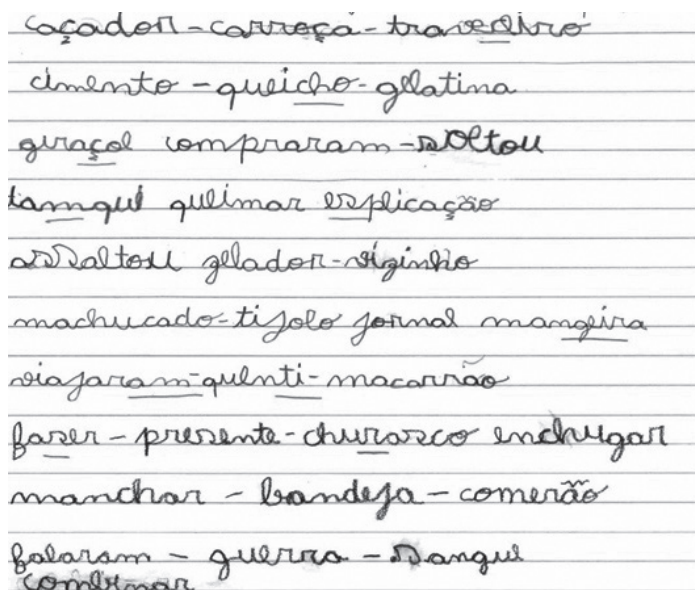 caçador - carroça - traveseiro
cimento - queicho - gelatina
giraçol compraram - soltou
tamque queimar esplicação
assaltou gelador - viginho
machucado - tijolo jornal mangeira
viajaram - quenti - macarrão
faser - presente - churasco enchugar
manchar - bandeja - comerão
falaram - guerra - sangue
combinar